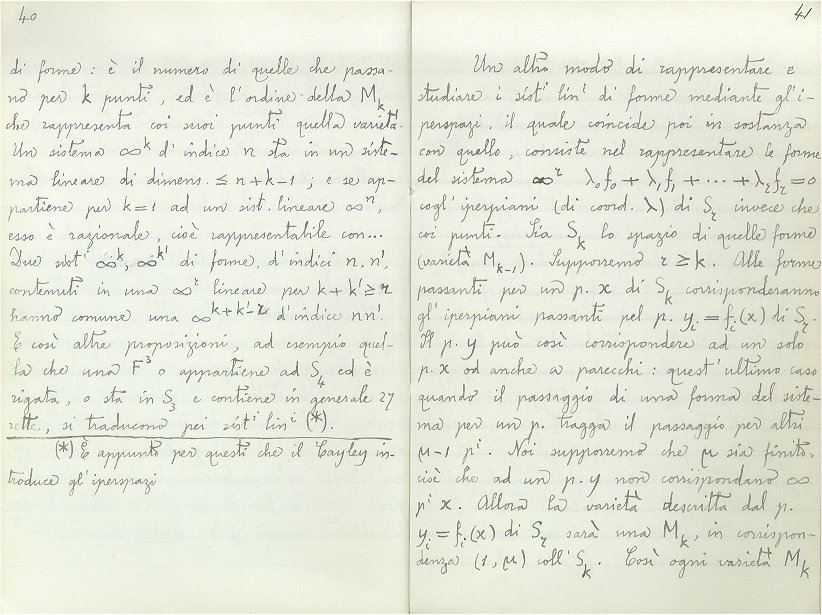 40
di forme: è il numero di quelle che passa-
no per k punti, ed è l'ordine della M_k
che rappresenta coi suoi punti quella varietà.
Un sistema ∞^k d'indice n sta in un siste-
ma lineare di dimens. ≤ n+k-1; e se ap-
partiene per k=1 ad un sist. lineare ∞^n,
esso è razionale, cioè rappresentabile con...
Due sist^i ∞^k, ∞^k' di forme, d'indici n, n',
contenuti in una ∞^r lineare per k+k' ≥ r
hanno comune una ∞^{k+k'-r} d'indice nn'.
E così altre proposizioni, ad esempio quel-
la che una F^3 o appartiene ad S_4 ed è
rigata, o sta in S_3 e contiene in generale 27
rette, si traducono pei sist^i lin^i (*).
(*) È appunto per questi che il Cayley in-
troduce gl'iperspazi
41
Un altro modo di rappresentare e
studiare i sist^i lin^i di forme mediante gl'i-
perspazi, il quale coincide poi in sostanza
con quello, consiste nel rappresentare le forme
del sistema ∞^r λ_0 f_0 + λ_1 f_1 + ... + λ_r f_r = 0
cogl'iperpiani (di coord. λ) di S_r invece che
coi punti. Sia S_k lo spazio di quelle forme
(varietà M_{k-1}). Supporremo r ≥ k. Alle forme
passanti per un p. x di S_k corrisponderanno
gl'iperpiani passanti pel p. y_i = f_i(x) di S_r.
Il p. y può così corrispondere ad un solo
p. x od anche a parecchi: quest'ultimo caso
quando il passaggio di una forma del siste-
ma per un p. tragga il passaggio per altri
μ-1 p^i. Noi supporremo che μ sia finito,
cioè che ad un p. y non corrispondano ∞
p^i x. Allora la varietà descritta dal p.
y_i = f_i(x) di S_r sarà una M_k, in corrispon-
denza (1, μ) coll'S_k. Così ogni varietà M_k